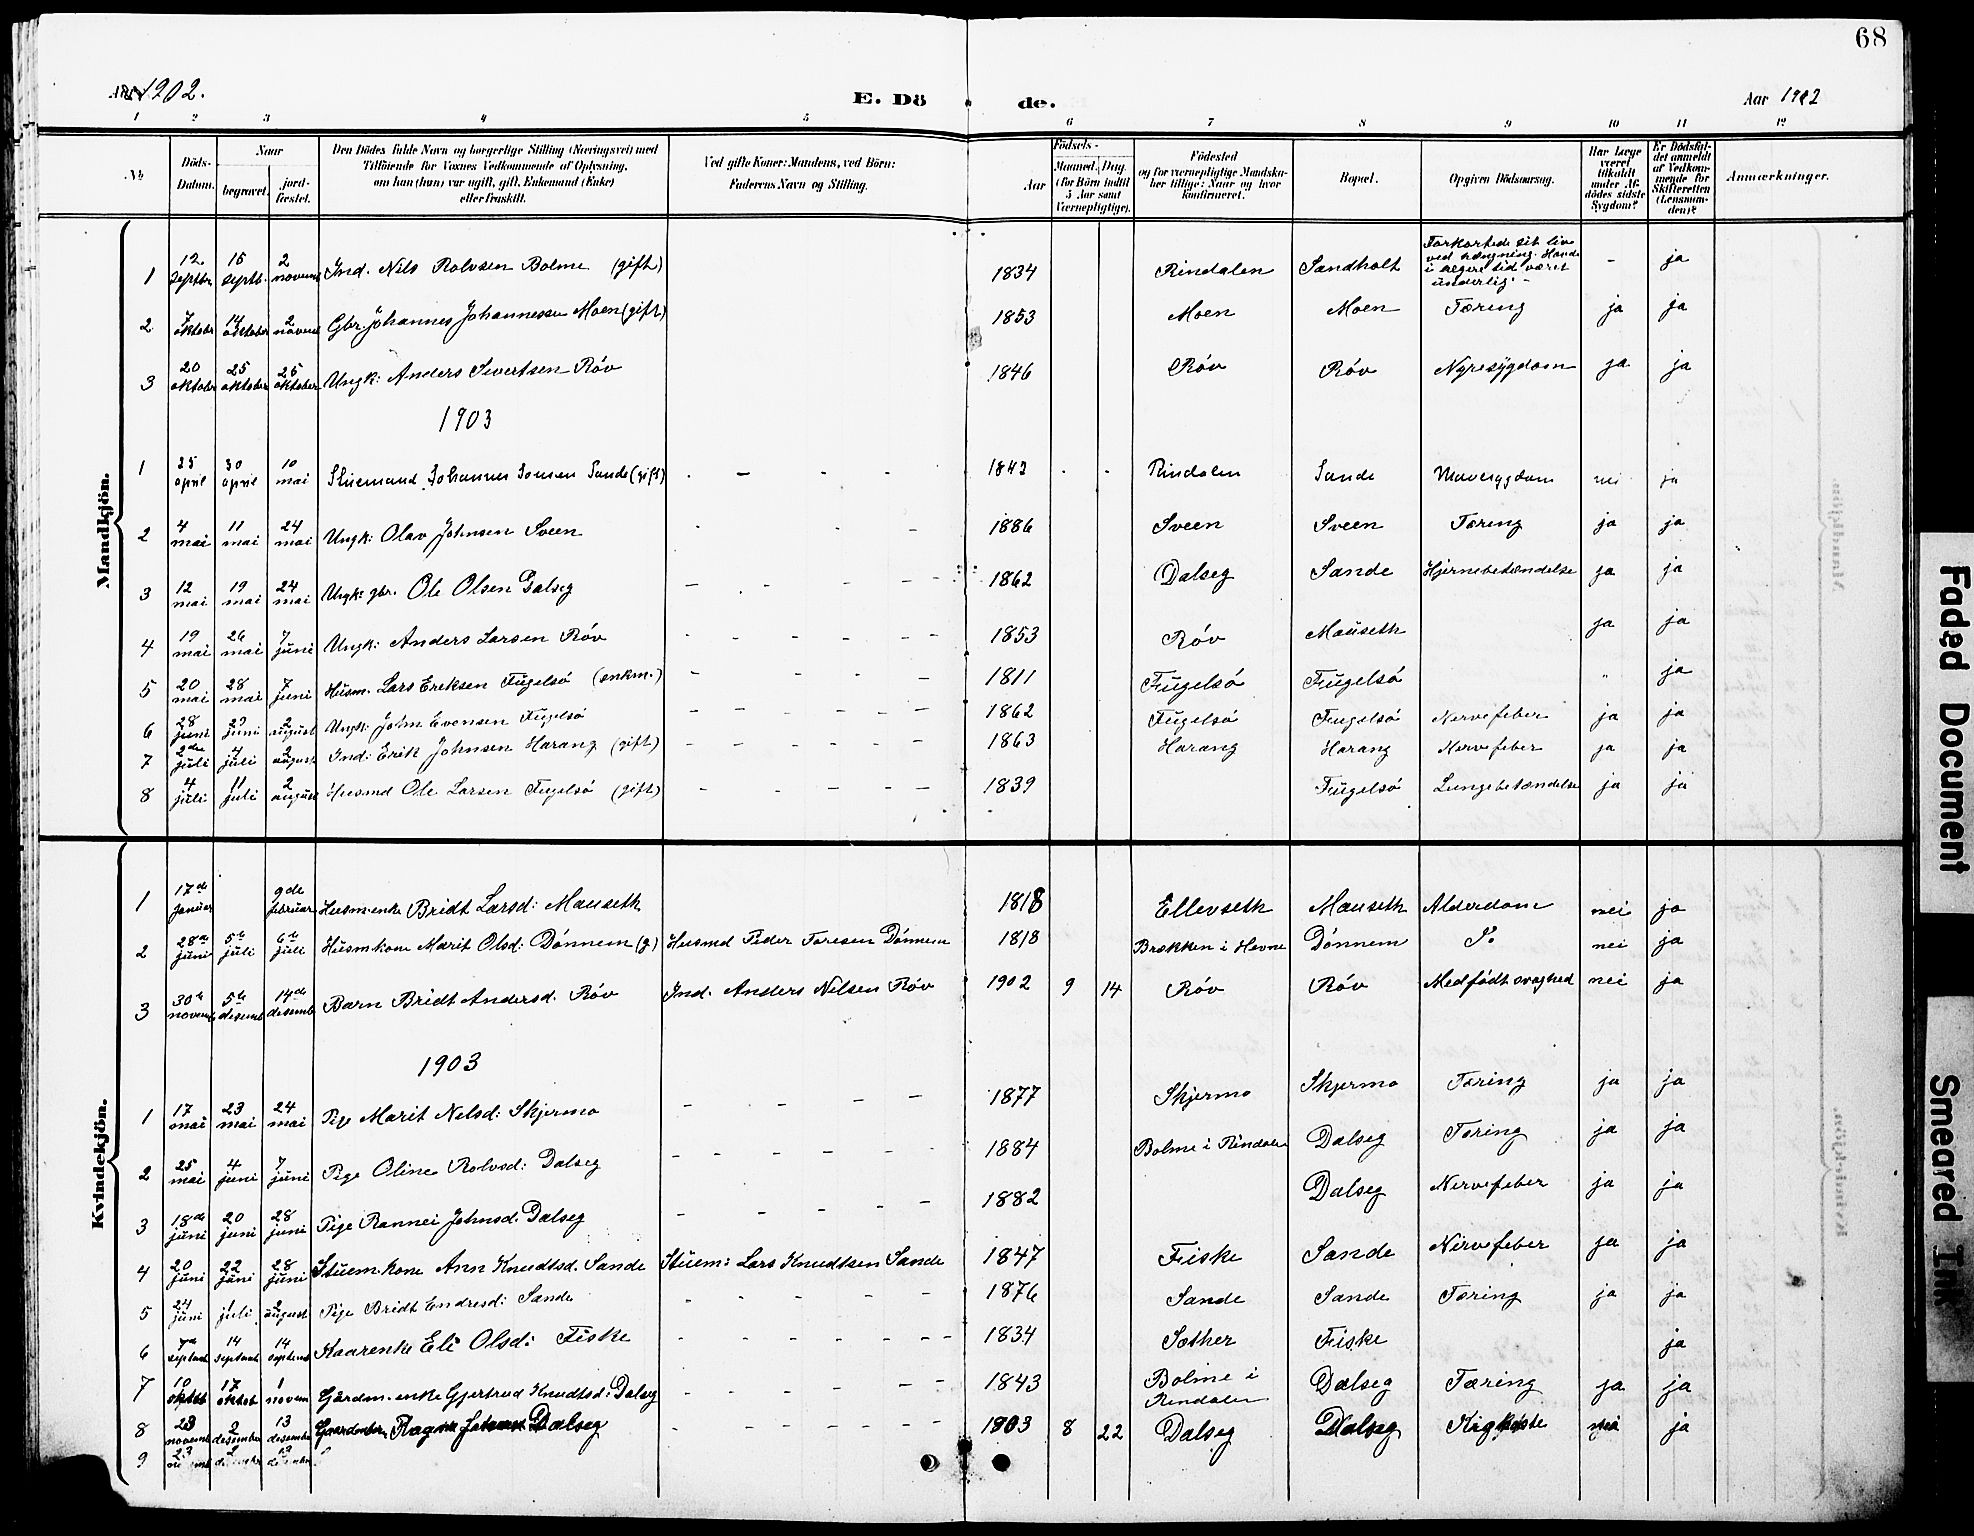 68
Aar 1902.
E. Dö de.
Aar 1902
1 2 3 4 5 6 7 8 9 10 11 12
№
Döds-Datum.
Naar
begravet.
jord-fæstet.
Den Dödes fulde Navn og borgerlige Stilling (Næringsvei) med
Tilföiende for Voxnes Vedkommende af Oplysning,
om han (hun) var ugift, gift, Enkemand (Enke)
eller fraskilt.
Ved gifte Koner: Mandens, ved Börn:
Faderens Navn og Stilling.
Födsels-
Aar
Maaned. Dag.
(for Börn indtil
5 Aar samt
Værnepligtige).
Födested
og for værnepligtige Mandska-
ber tillige: Naar og hvor
konfirmeret.
Bopæl.
Opgiven Dödsaarsag.
Har Læge
været
tilkaldt
under Af-
dödes sidste
Sygdom?
Er Dödsfal-
det anmeldt
af Vedkom-
mende for
Skifteretten
(Lensman-
den)?
Anmærkninger.
Mandkjön.
1 12 Septbr. 15 septb. 2 novemb Ind. Nils Rolvsen Bolme (gift) 1834 Rindalen Sandholt Forkortede sit liv ved hængning. Havde i længere tid været underlig. - - ja
2 7 oktober 14 oktober 2 novemb Gbr. Johannes Johannessen Moen (gift) 1853 Moen Moen Tæring ja ja
3 20 oktober 25 oktober 25 oktober Ungk: Anders Sivertsen Röv 1846 Röv Röv Nyresygdom ja ja
1903
1 25 april 30 april 10 mai Stuemand Johannes Jonsen Sande (gift) - 1842 Rindalen Sande Mavesygdom nei ja
2 4 mai 11 mai 24 mai Ungk: Olav Johnsen Sveen 1886 Sveen Sveen Tæring ja ja
3 12 mai 19 mai 24 mai Ungk: gbr. Ole Olsen Dalseg 1862 Dalseg Sande Hjernebetændelse ja ja
4 19 mai 26 mai 7 juni Ungk: Anders Larsen Röv 1853 Röv Mauseth ja ja
5 20 mai 28 mai 7 juni Husm. Lars Eriksen Fugelsö (enkm.) 1811 Fugelsö Fugelsö " ja
6 28 juni 29 juni 2 august Ungk: John Evensen Fugelsö 1862 Fugelsö Fugelsö Nervefeber ja ja
7 2den juli 4 juli 2 august Ind: Erik Johnsen Harang (gift) 1863 Harang Harang Nervefeber ja ja
8 4 juli 11 juli 2 august Husmd Ole Larsen Fugelsö (gift) 1839 Fugelsö Lungebetændelse ja ja
Kvindekjön.
1 17de januar 9de februar Husm.enke Bridt Larsd: Mauseth 1818 Ellevseth Mauseth Alderdom nei ja
2 28de juni 5te juli 6te juli Husmkone Marit Olsd: Dönnem (g) Husmd Peder Toresen Dönnem 1818 Brækken i Hevne Dönnem Do nei ja
3 30te novemb 5te desemb 14de desemb Barn Bridt Andersd. Röv Ind. Anders Nilsen Röv 1902 9 14 Röv Röv Medfödt svaghed nei ja
1903
1 17 mai 23 mai 24 mai Pige Marit Nelsd: Skjermo 1877 Skjermo Skjermo Tæring ja ja
2 25 mai 4 juni 7 juni Pige Oline Rolvsd: Dalseg 1884 Bolme i Rindalen Dalseg Tæring ja ja
3 18de juni 20 juni 28 juni Pige Rannei Johnsd. Dalseg 1882 Dalseg Nervefeber ja ja
4 20 juni 22 juni 28 juni Stuem.kone Ann Knudtsd. Sande Stuem: Lars Knudtsen Sande 1847 Fiske Sande Nervefeber ja ja
5 24 juni 1 juli 2 august Pige Bridt Endresd: Sande 1876 Sande Sande Tæring ja ja
6 7de septemb 14 septemb. 14 septemb Kaarenke Eli Olsd: Fiske 1834 Sæther Fiske ja
7 10 oktob 17 oktob 1 novem Gardm.enke Gjertrud Knudtsd: Dalseg 1843 Bolme i Rindalen Dalseg Tæring ja ja
8 23 novemb 2 desember 13 desember Dalseg 1903 8 22 Dalseg Dalseg Kighoste nei ja
9 23
Faded Document
Smeared Ink